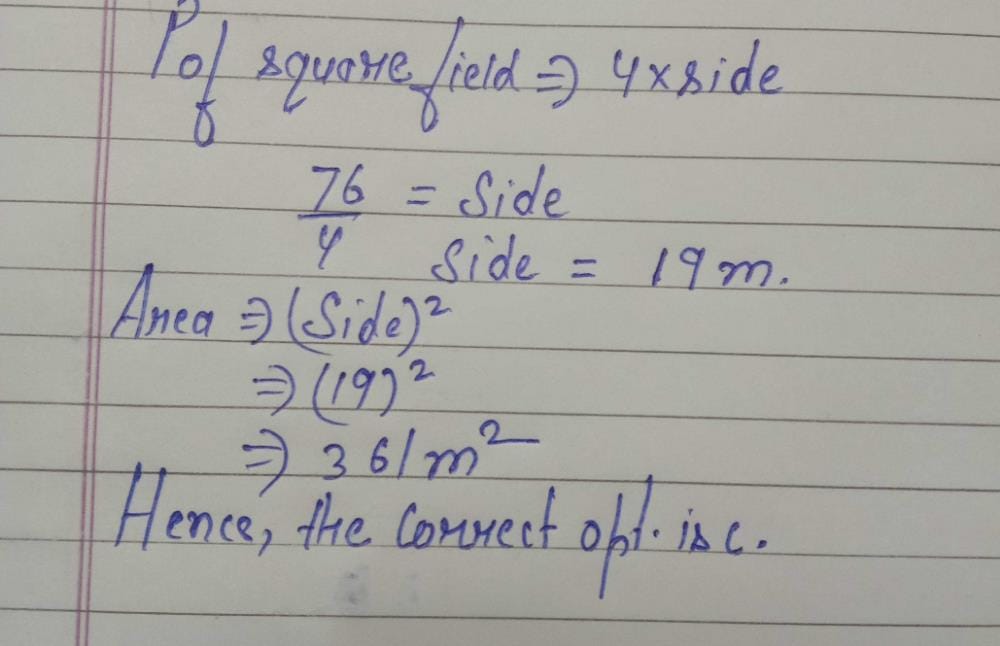 P of square field ⇒ 4×side
76/4 = Side
Side = 19m.
Area ⇒ (Side)²
⇒ (19)²
⇒ 361m²
Hence, the correct opt. is c.